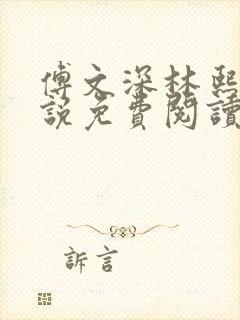 傅文深林熙
說免費閱讀
訴言